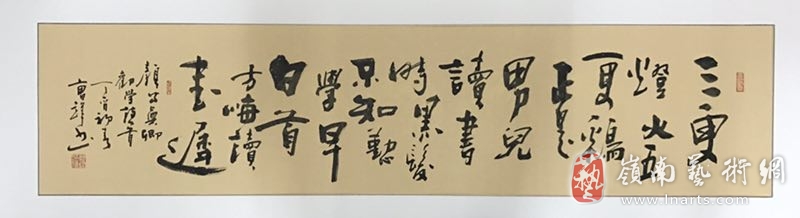 三更
燈火五
更鷄
正是
男兒
讀書
時黑髮
不知勤
學早
白首
方悔讀
書遲
顏公真卿
勸學詩
丁酉
藝
嶺南藝術網
www.lnarts.com